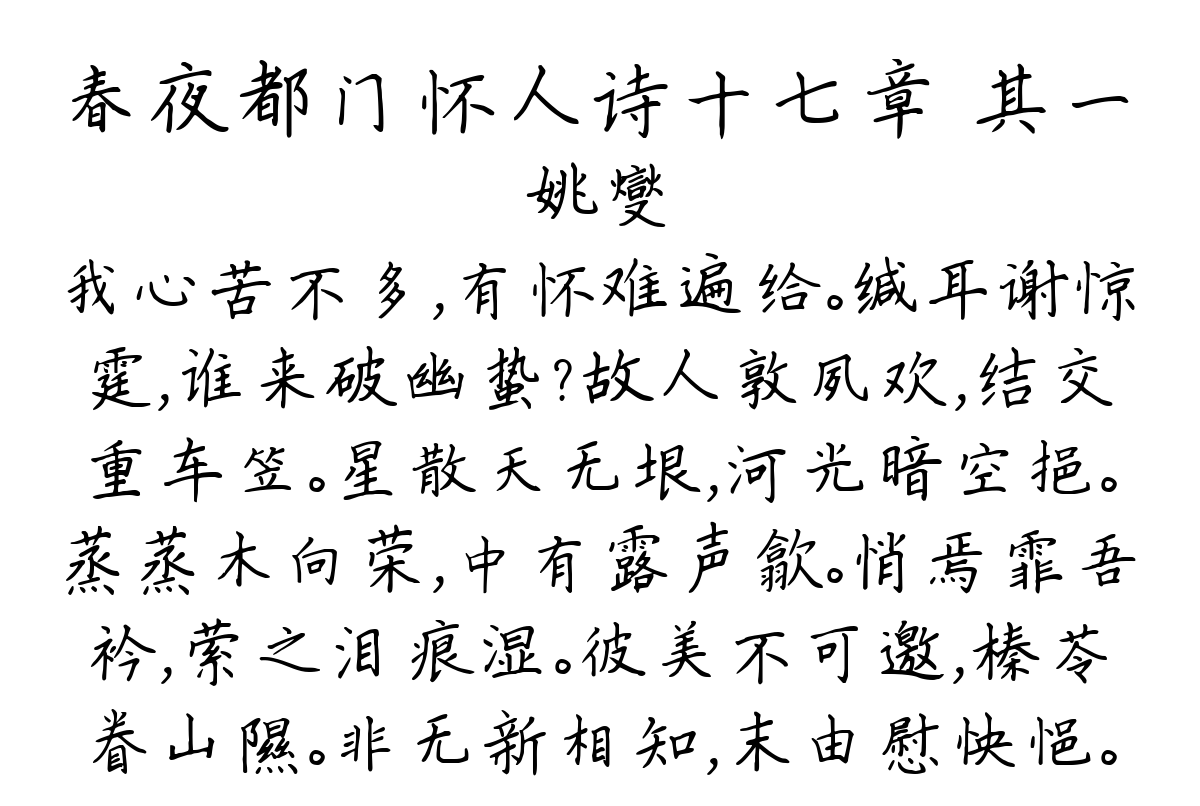 春夜都门怀人诗十七章 其一
姚燮
我心苦不多,有怀难遍给。缄耳谢惊
霆,谁来破幽蛰?故人敦夙欢,结交
重车笠。星散天无垠,河光暗空挹。
蒸蒸木向荣,中有露声歙。悄焉霏吾
衿,萦之泪痕湿。彼美不可邀,榛苓
眷山隰。非无新相知,末由慰怏悒。